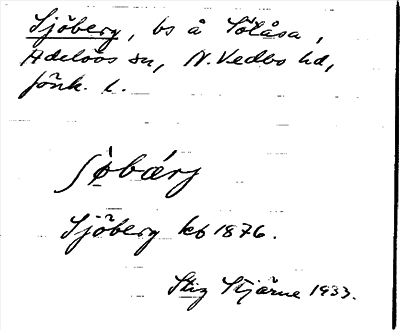 Sjöberg, bs å Sölåsa,
Adelövs sn, N. Vedbo hd,
Jönk. l.
Sjöberg kb 1876.
Stig Stjärne 1933.